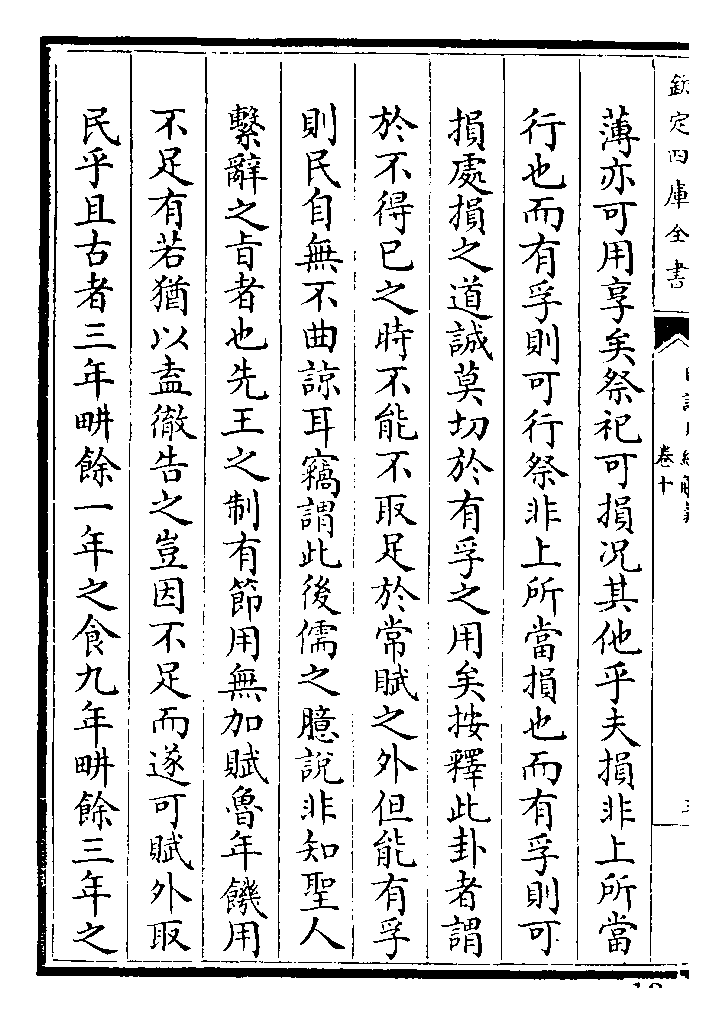 欽定四庫全書
卷十
薄亦可用享矣祭祀可損况其他乎夫損非上所當
行也而有孚則可行祭非上所當損也而有孚則可
損處損之道誠莫切於有孚之用矣按釋此卦者謂
於不得已之時不能不取足於常賦之外但能有孚
則民自無不曲諒耳竊謂此後儒之臆說非知聖人
繫辭之旨者也先王之制有節用無加賦魯年饑用
不足有若猶以盍徹告之豈因不足而遂可賦外取
民乎且古者三年畊餘一年之食九年畊餘三年之